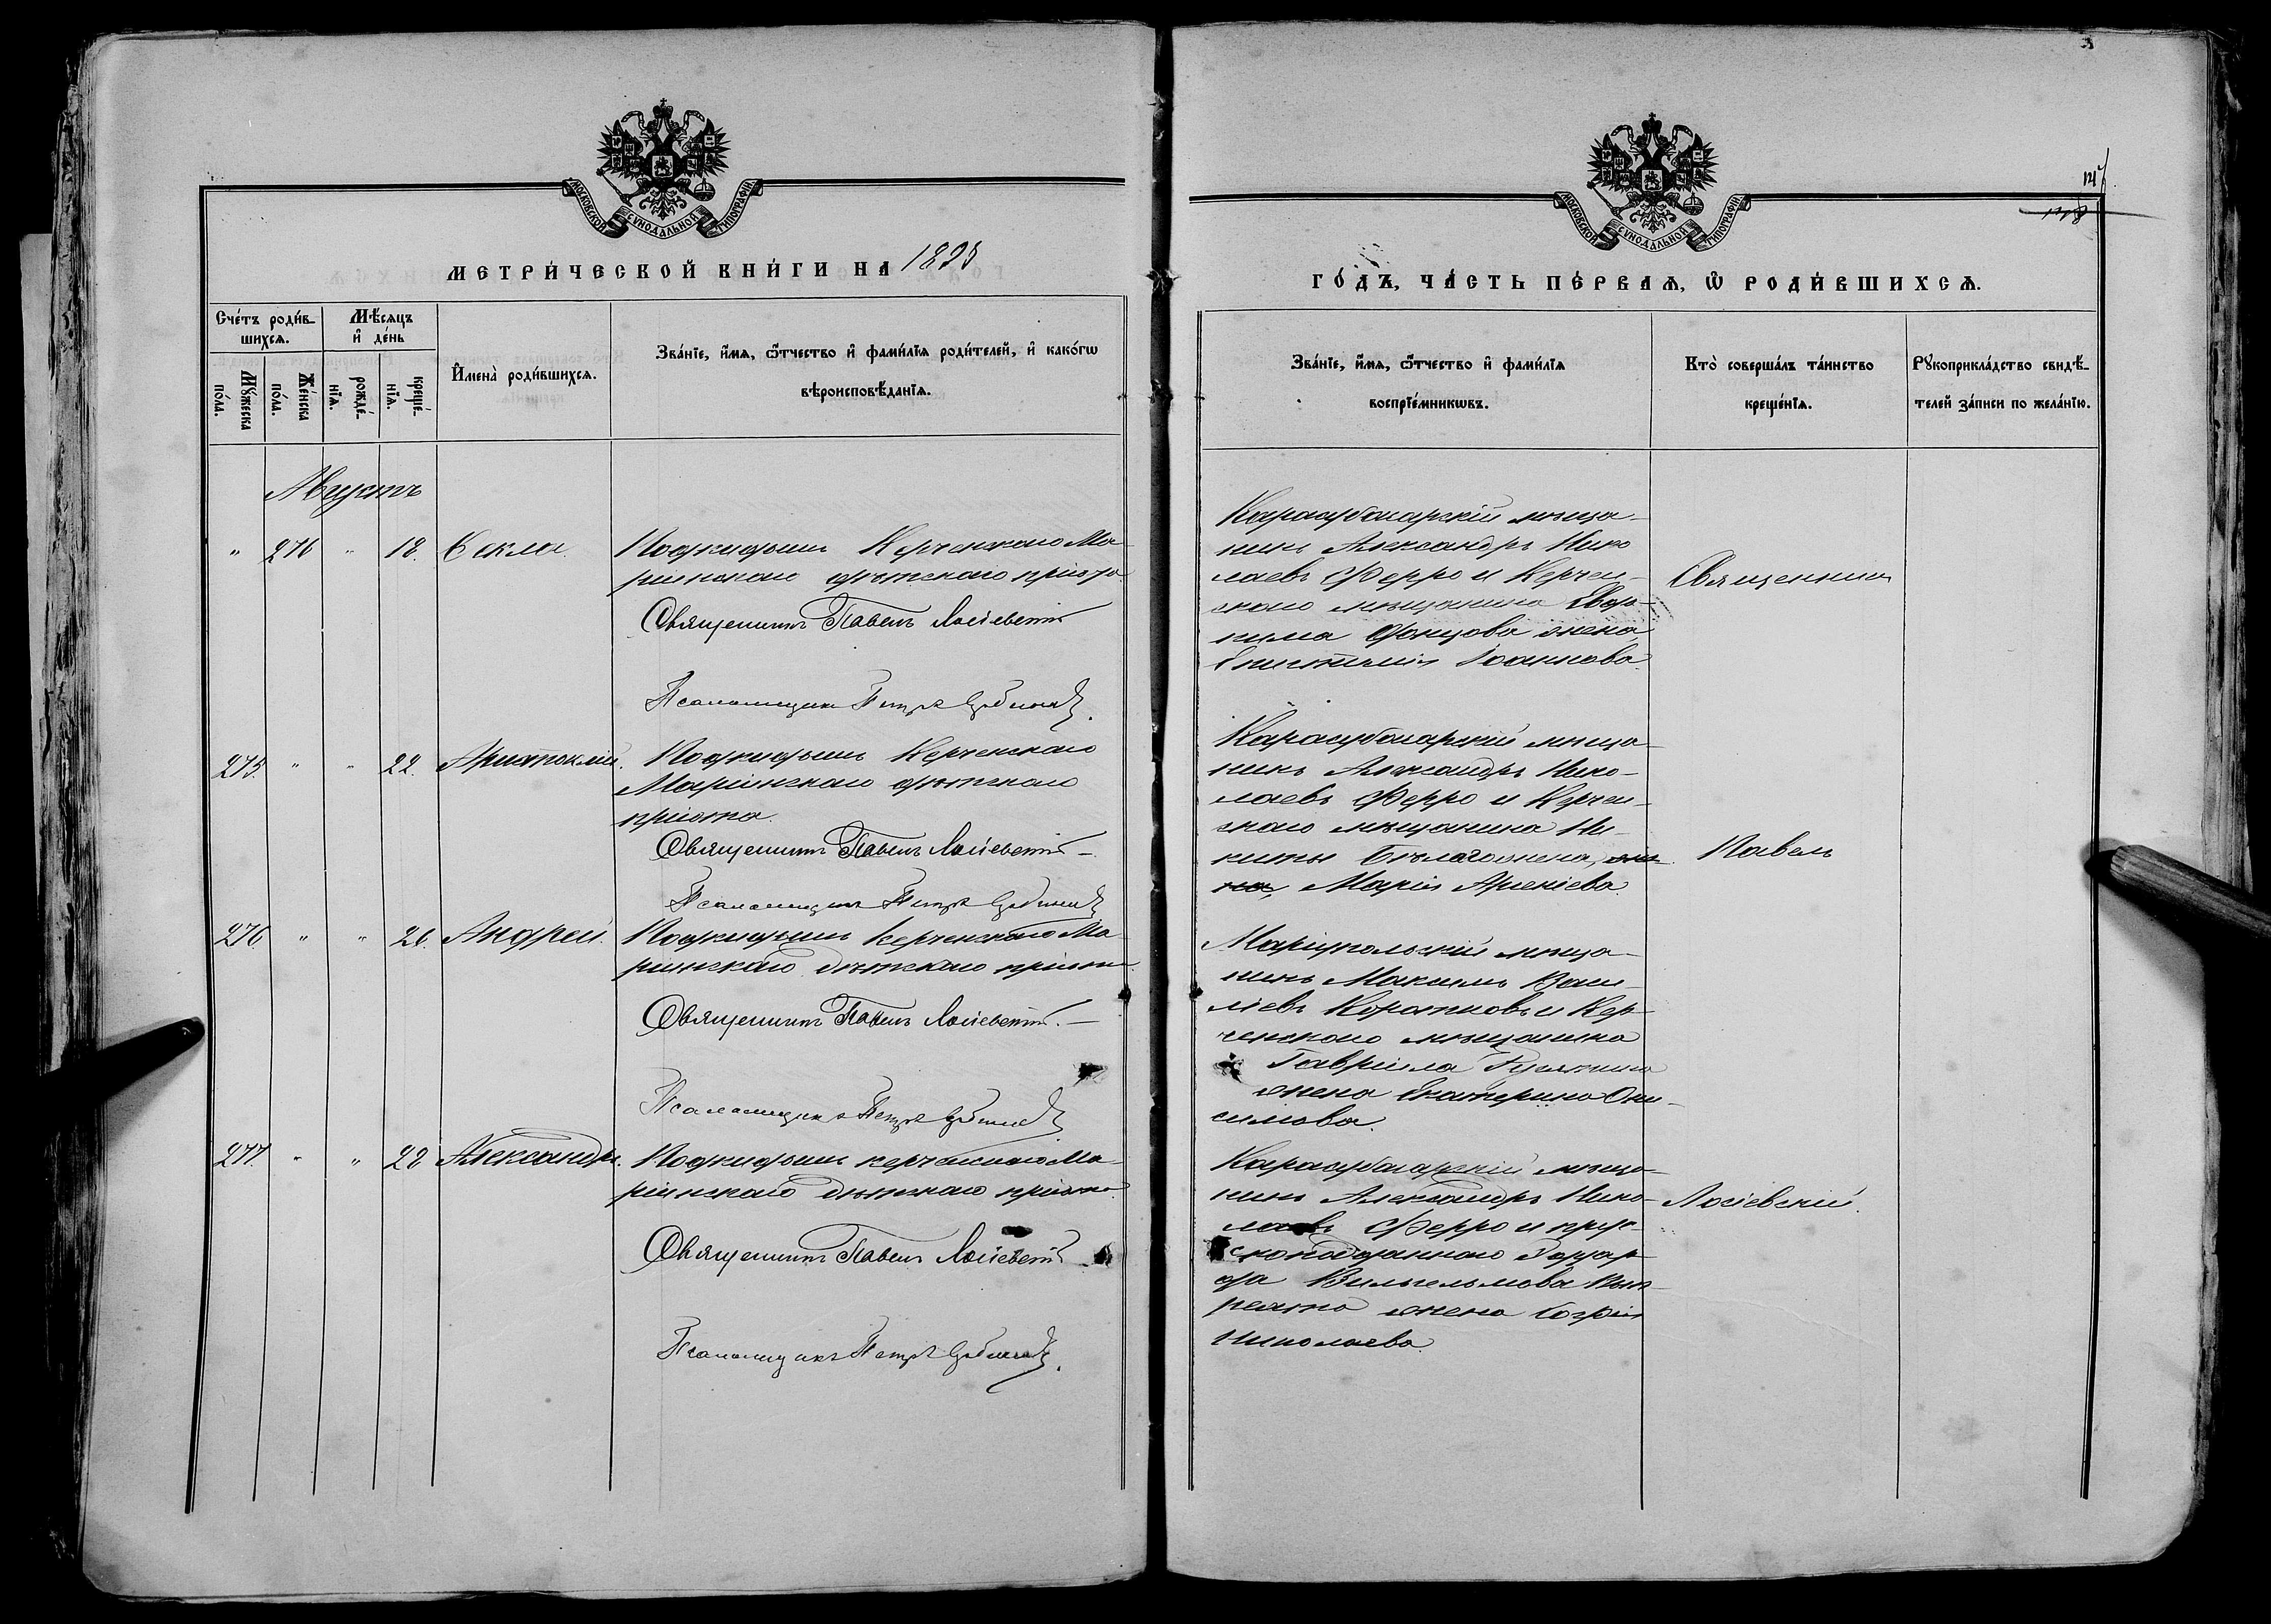 МОСКОВСКОЙ СѴНОДАЛЬНОЙ ТИПОГРАФІИ
МЕТРИ́ЧЕСКОЙ КНИ́ГИ НА 1895
Сче́тъ роди́в-
шихсѧ.
Мѣ́сѧцъ
и҆ де́нь
Мꙋ́жеска
по́ла.
Же́нска
по́ла.
рожде́-
нїѧ.
креще́-
нїѧ.
И҆мена̀ роди́вшихсѧ.
Зва́нїе, и҆́мѧ, ѻ҆́тчество и҆ фами́лїѧ роди́телей, и҆ како́гѡ
вѣроисповѣ́данїѧ.
Августъ
" 276 " 18. Ѳекла. Подкидышъ Керченскаго Ма-
ріинскаго дѣтскаго пріюта.
Священникъ Павелъ Лосіевскій
Псаломщикъ Петръ
275. " " 22. Аристоклій. Подкидышъ Керченскаго
Маріинскаго дѣтскаго
пріюта.
Священникъ Павелъ Лосіевскій
Псаломщикъ Петръ
276 " " 26. Андрей. Подкидышъ Керченскаго Ма-
ріинскаго дѣтскаго пріюта.
Священникъ Павелъ Лосіевскій.
Псаломщикъ Петръ
277. " " 28 Александръ. Подкидышъ керченскаго Ма-
ріинскаго дѣтскаго пріюта.
Священникъ Павелъ Лосіевскій
Псаломщикъ Петръ
МОСКОВСКОЙ СѴНОДАЛЬНОЙ ТИПОГРАФІИ
ГО́ДЪ, ЧА́СТЬ ПЕ́РВАѦ, Ѡ҆ РОДИ́ВШИХСѦ.
Зва́нїе, и҆́мѧ, ѻ҆́тчество и҆ фами́лїѧ
воспрїе́мникѡвъ.
Кто̀ соверша́лъ та́инство
креще́нїѧ.
Рꙋкоприкла́дство свидѣ́-
телей за́писи по жела́нїю.
Карасубазарскій мѣща-
нинъ Александръ Нико-
лаевъ Ферро и Керчен-
скаго мѣщанина
жена
Іоаннова.
Священникъ
Карасубазарскій мѣща-
нинъ Александръ Нико-
лаевъ Ферро и Керчен-
скаго мѣщанина Ни-
киты жена,
Марія Арсеніева.
Павелъ
Маріупольскій мѣща-
нинъ Максимъ Васи-
ліевъ Коротковъ и Кер-
ченскаго мѣщанина
Гавріила
жена Екатерина Они-
симова.
Карасубазарскій мѣща-
нинъ Александръ Нико-
лаевъ Ферро и прус-
скоподданнаго
Вильгельмова
жена Софія
Николаева.
Лосіевскій.